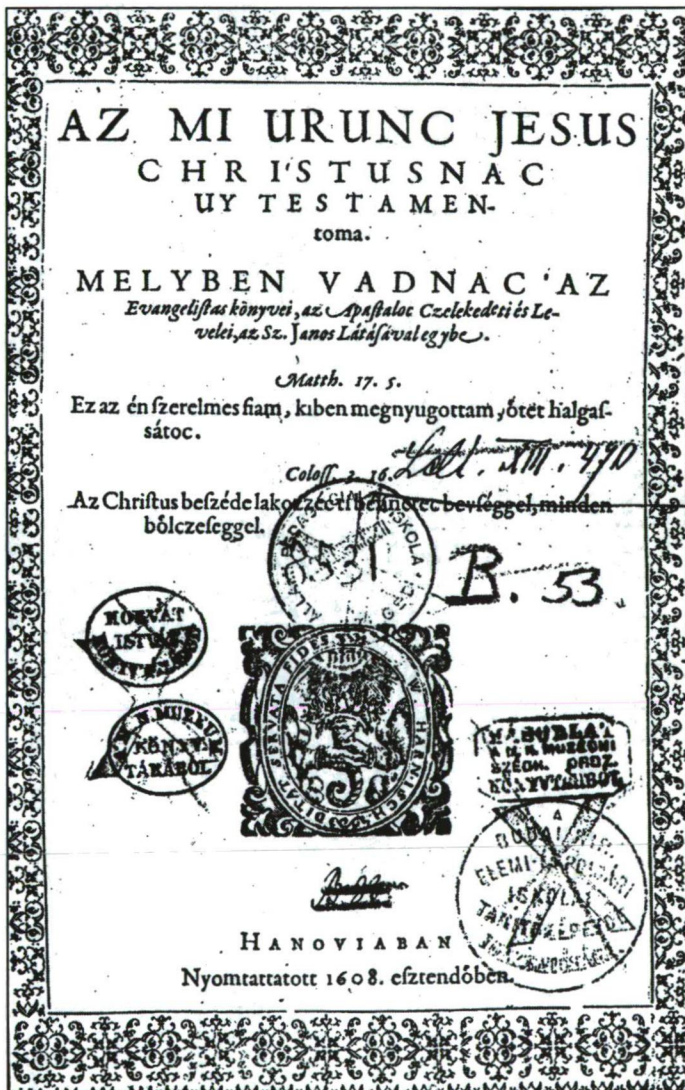 AZ MI URUNC JESUS
CHRISTUSNAC
UY TESTAMEN-
toma.
MELYBEN VADNAC AZ
Evangeliſtas kȯnyvei, az Apaſtaloc Czelekedeti és Le-
velei, az Sz. Janos Látáſával egybe.
Matth. 17. 5.
Ez az én ſzerelmes fiam, kiben megnyugottam, ȯtet halgaſ-
sátoc.
Coloſſ. 3. 16.
Az Chriſtus beſzéde lakozzéc ti bennetec bevſéggel, minden
bȯlczeſeggel.
XIII. 490
3531
B. 53
HORVÁT
ISTVÁN
M. N. MUZEUM
KÖNYV-
TÁRÁBÓL
SERVATA FIDES DITAT
A M. N. MUZEUMI
SZÉCH. ORSZ.
KÖNYVTÁRBÓL
A
BUDAI
ELEMI POLGÁRI
ISKOLAI
TANITÓKÉPEZDE
HANOVIABAN
Nyomtattatott 1608. eſztendȯben.